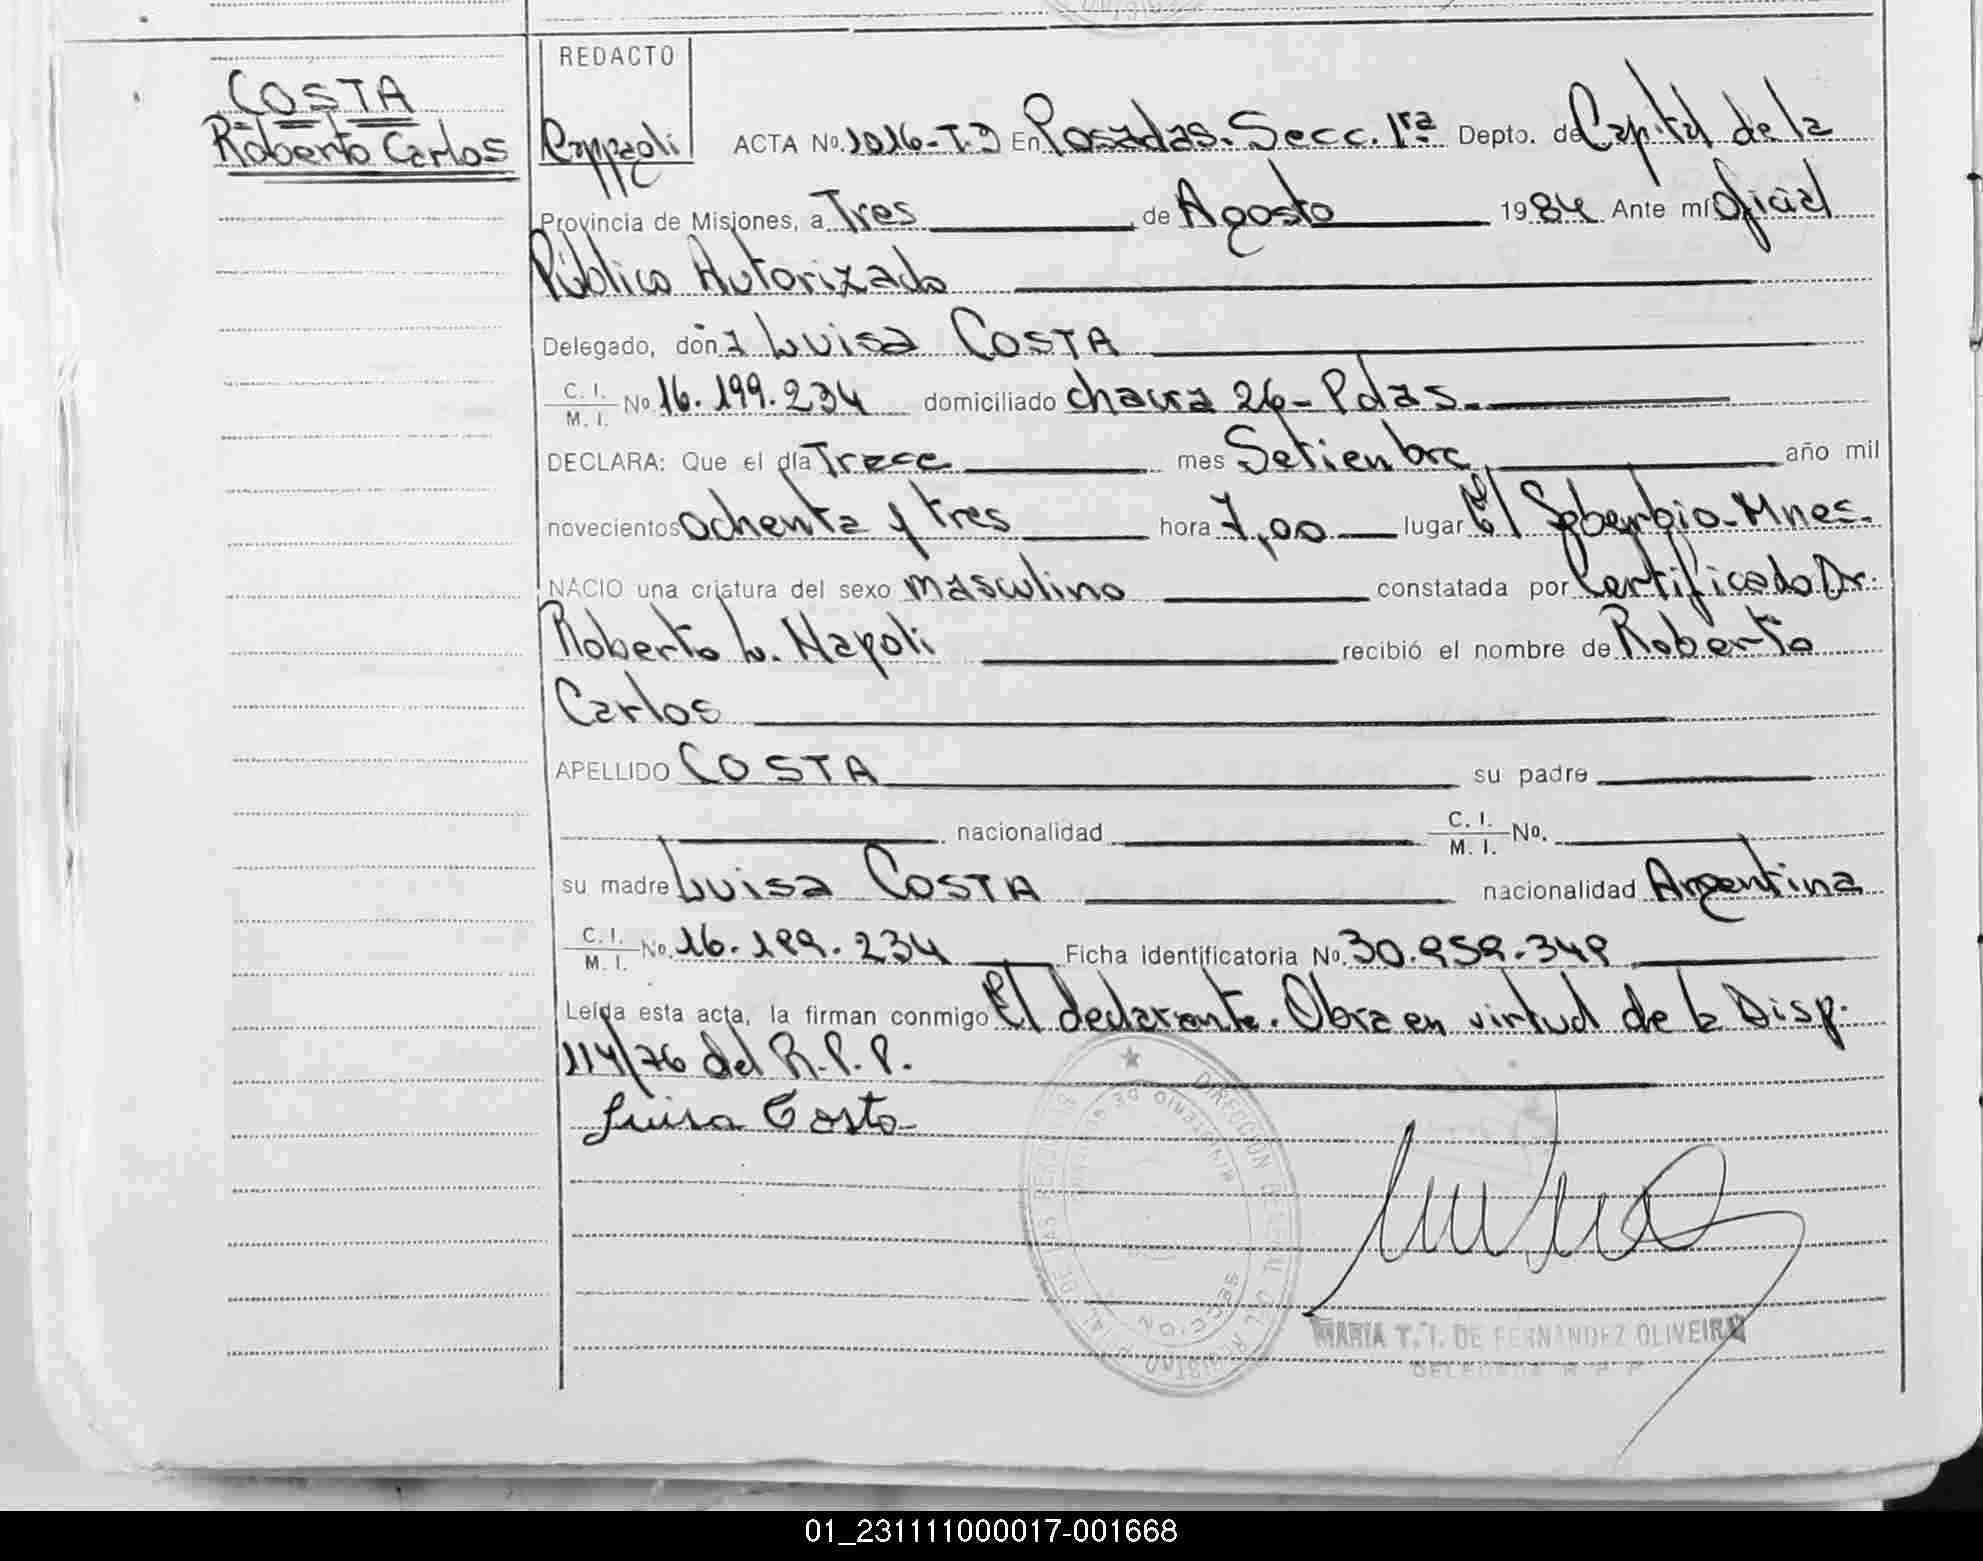 COSTA
Roberto Carlos
REDACTO
ACTA No. 1016-T.3 En Posadas. Secc. 1ra Depto. de Capital de la
Provincia de Misiones, a Tres de Agosto 1984 Ante mí Oficial
Público Autorizado
Delegado, doña Luisa COSTA
C. I. M. I. No 16.199.234 domiciliado chacra 26-Pdas.
DECLARA: Que el día Trece mes Setiembre año mil
novecientos ochenta y tres hora 7,00 lugar El Soberbio-Mnes.
NACIO una criatura del sexo masculino constatada por Certificado Dr.
Roberto L. Napoli recibió el nombre de Roberto
Carlos
APELLIDO COSTA su padre
nacionalidad C. I. M. I. No.
su madre Luisa COSTA nacionalidad Argentina
C. I. M. I. No. 16.199.234 Ficha identificatoria No. 30.959.349
Leída esta acta, la firman conmigo El declarante. Obra en virtud de la Disp.
114/76 del R.P.P.
Luisa Costa
DIRECCION GENERAL DEL REGISTRO PROVINCIAL DE LAS PERSONAS
MINISTERIO DE GOBIERNO
SECCION
MARIA T. I. DE FERNANDEZ OLIVEIRA
DELEGADA R P P
01_231111000017-001668